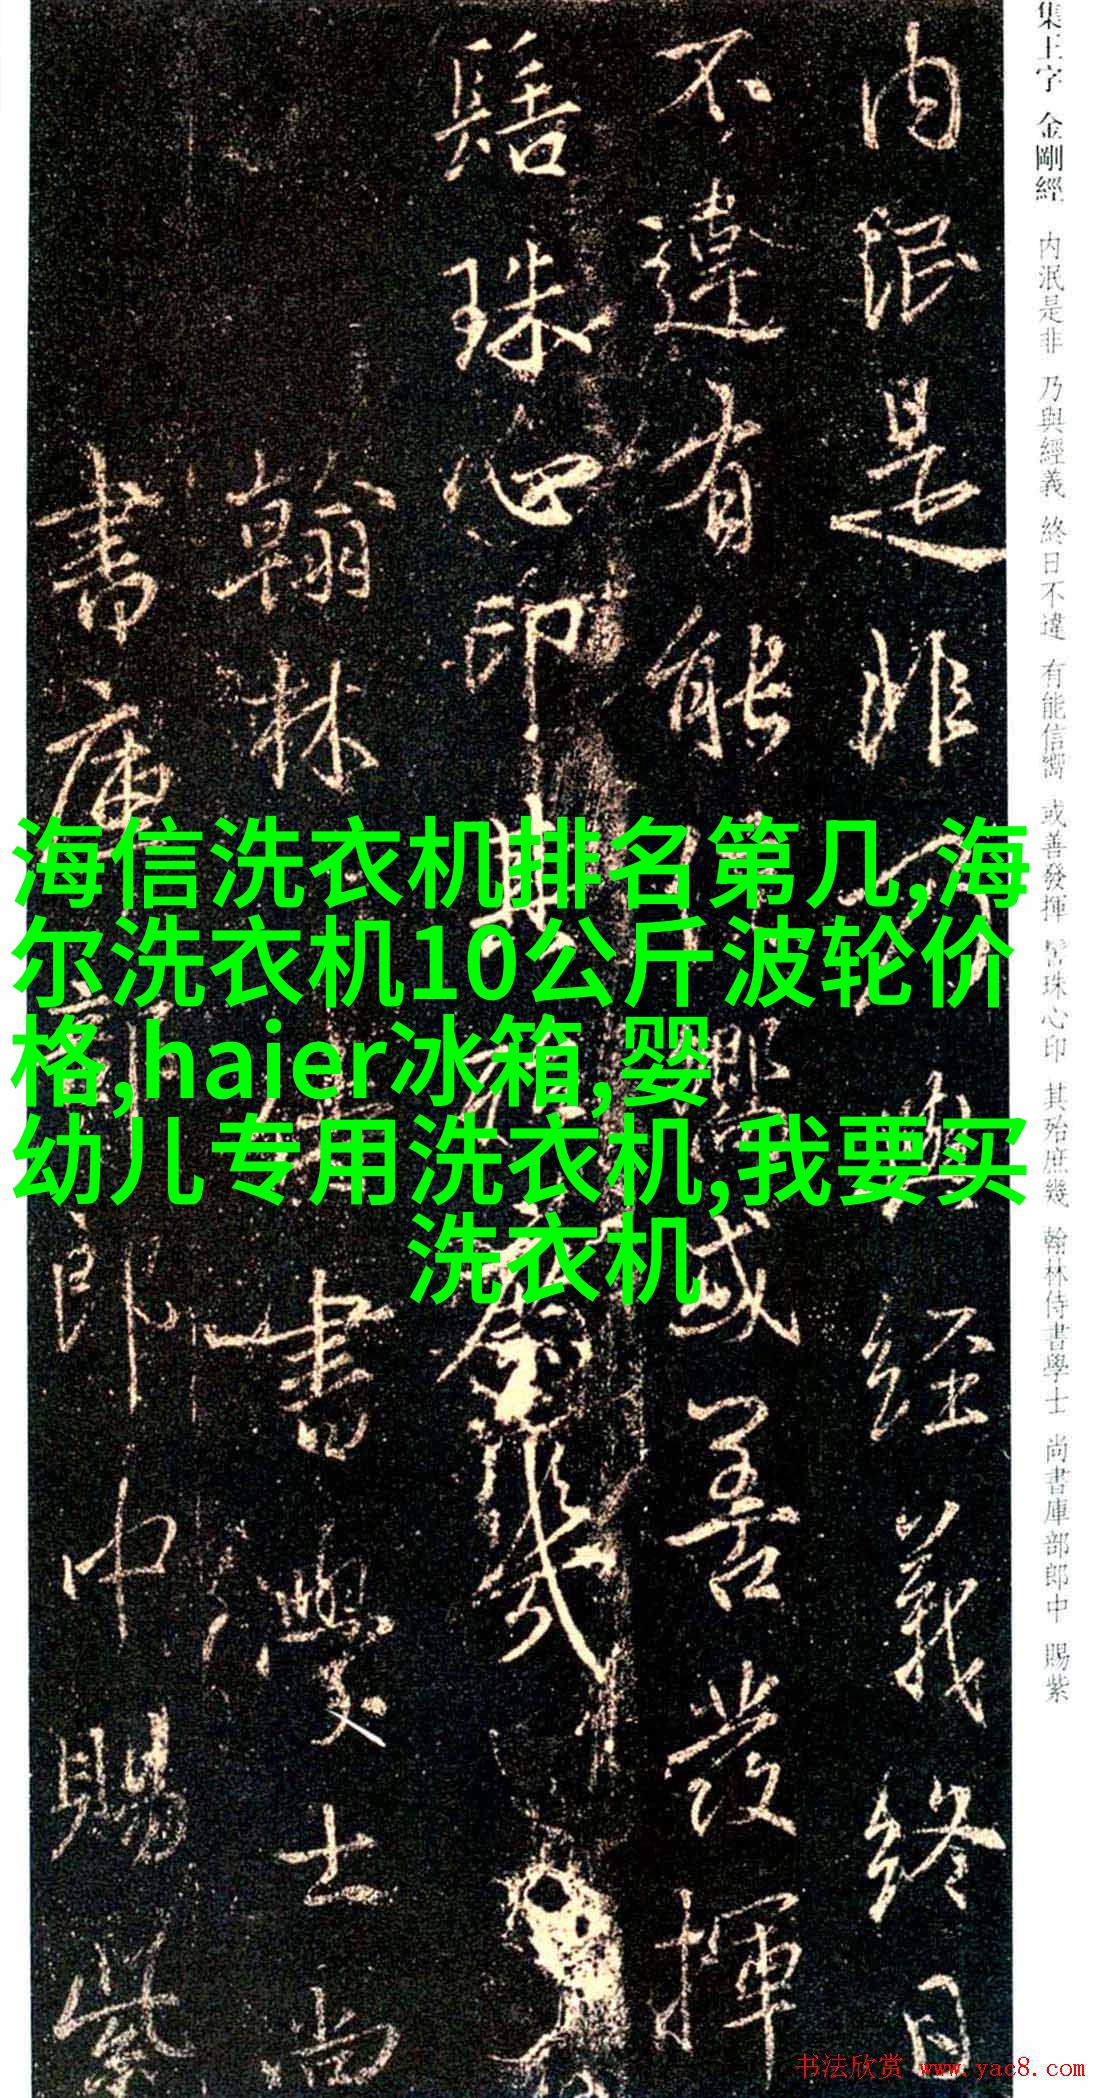 集王字 金剛經 内泯是非 乃與經義 終日不違 有能信嚮 或善發揮 髻珠心印 其殆庶幾 翰林侍書學士 尚書庫部郎中 賜紫
内泯是非乃與經義終日
不違有能信嚮或善發揮
髻珠心印其殆庶幾
翰林侍書學士尚
書庫部郎中賜紫
海信洗衣机排名第几,海
尔洗衣机10公斤波轮价
格,haier冰箱,婴
幼儿专用洗衣机,我要买
洗衣机
书法欣赏 www.yac8.com